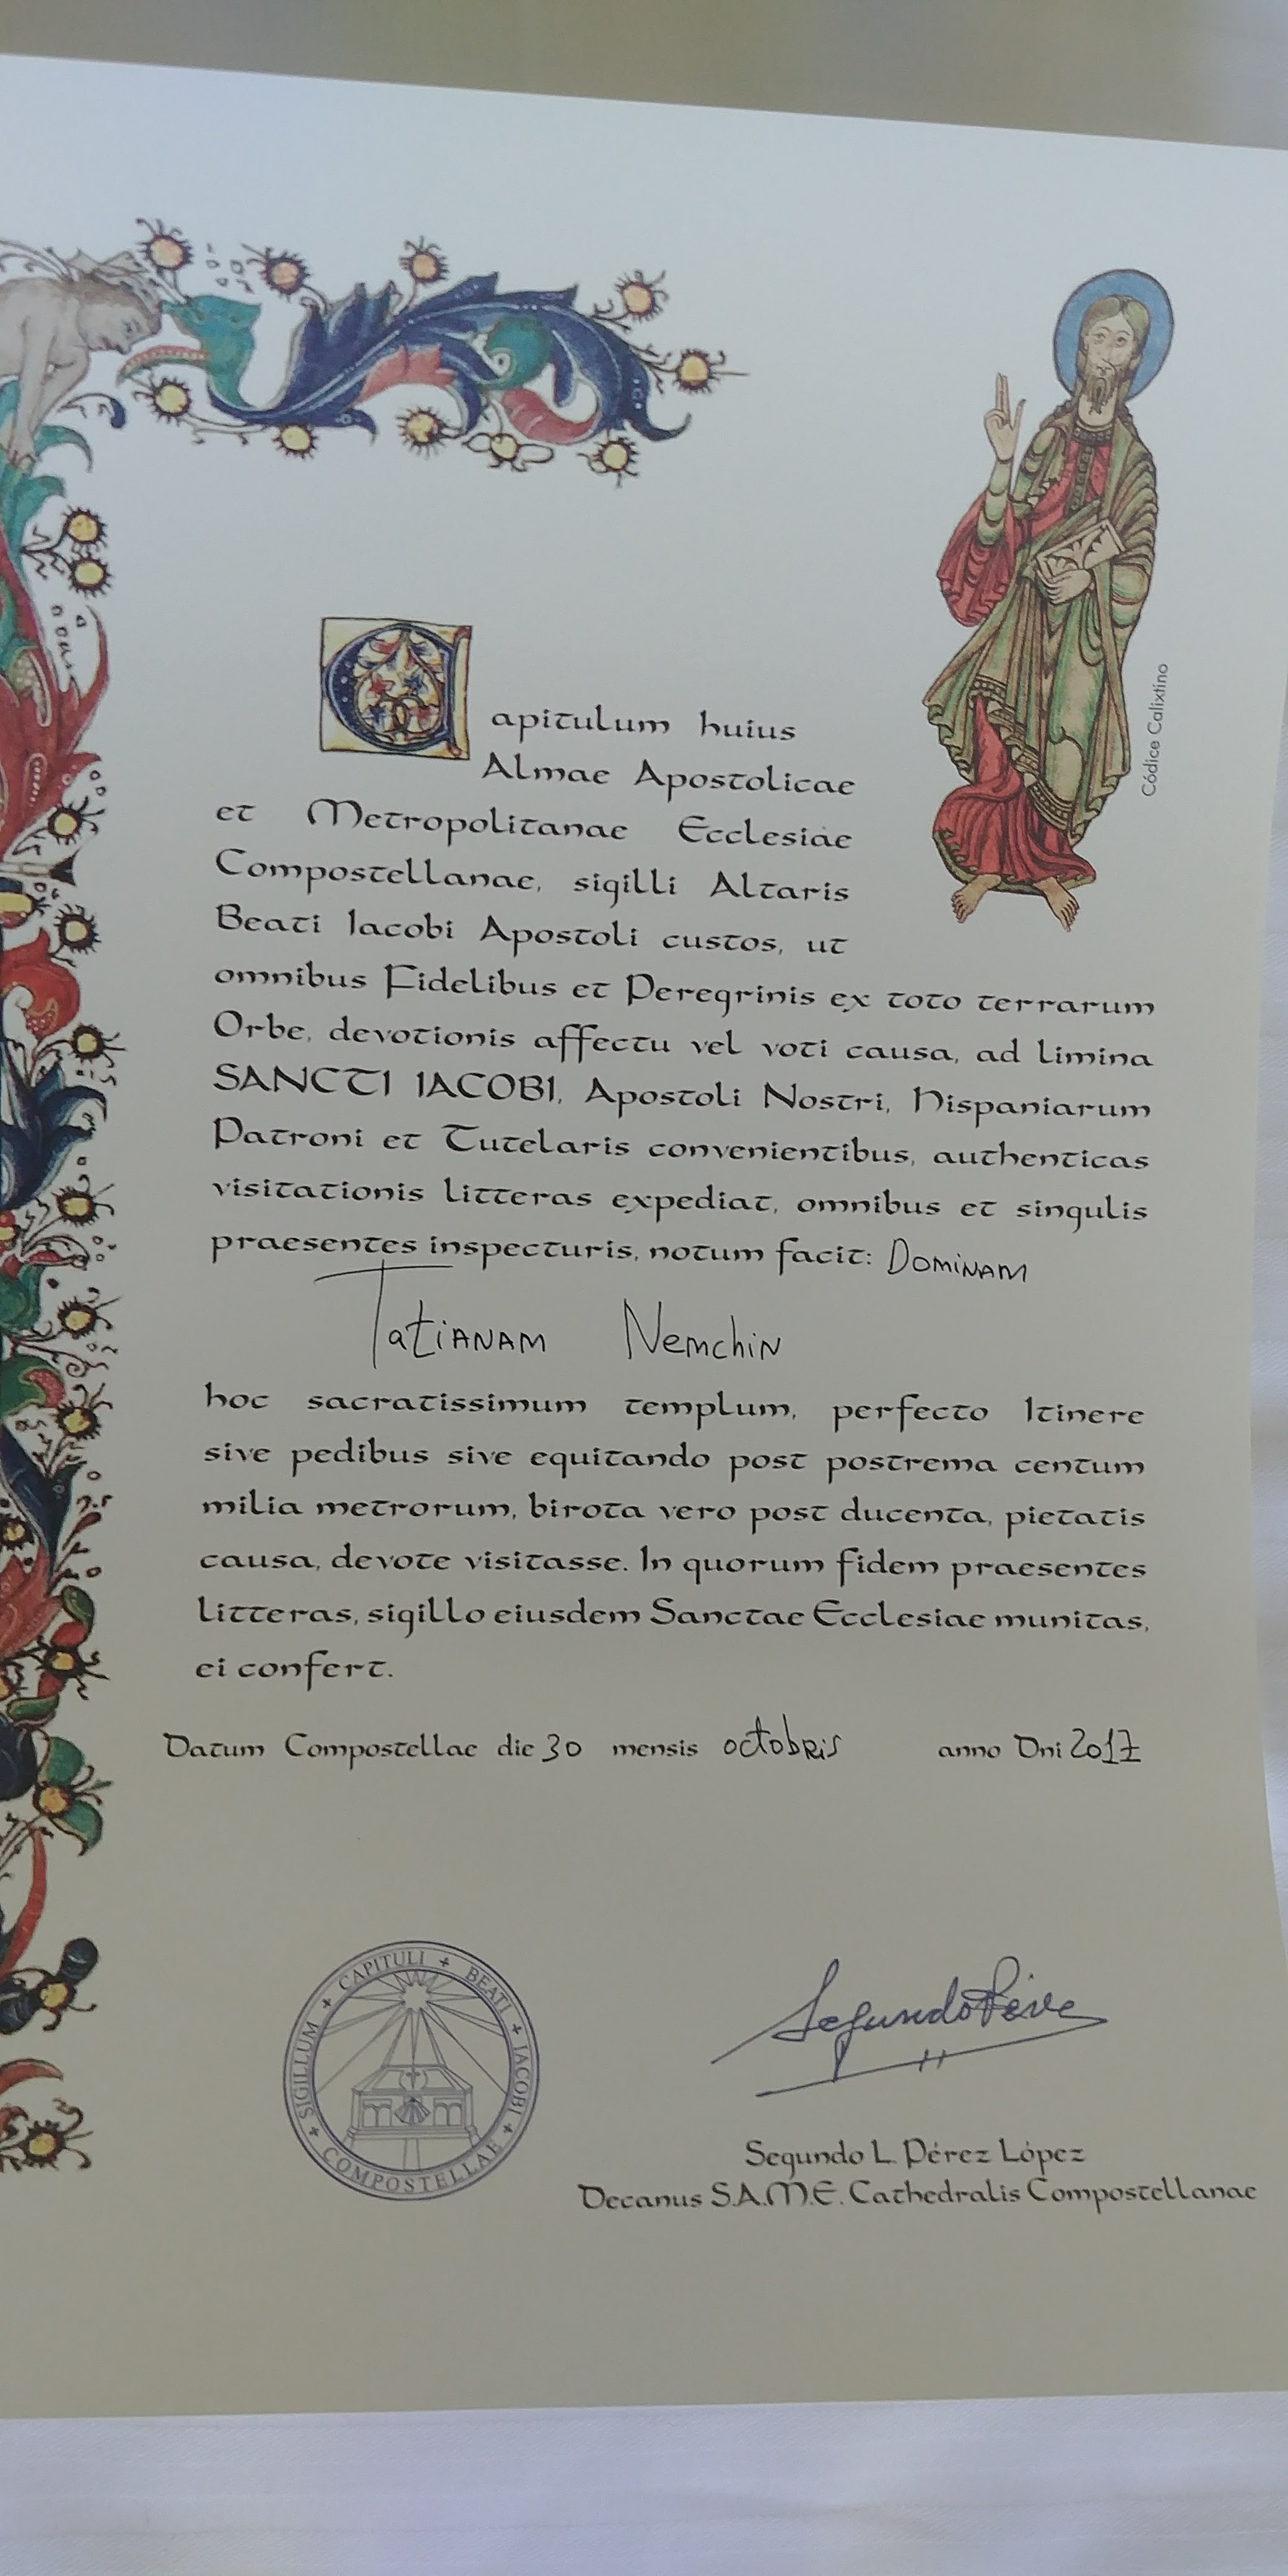 Capitulum huius
Almae Apostolicae
et Metropolitanae Ecclesiae
Compostellanae, sigilli Altaris
Beati Iacobi Apostoli custos, ut
omnibus Fidelibus et Peregrinis ex toto terrarum
Orbe, devotionis affectu vel voti causa, ad limina
SANCTI IACOBI, Apostoli Nostri, Hispaniarum
Patroni et Tutelaris convenientibus, authenticas
visitationis litteras expediat, omnibus et singulis
praesentes inspecturis, notum facit: DOMINAM
TatiANAM NemchiN
hoc sacratissimum templum, perfecto Itinere
sive pedibus sive equitando post postrema centum
milia metrorum, birota vero post ducenta, pietatis
causa, devote visitasse. In quorum fidem praesentes
litteras, sigillo eiusdem Sanctae Ecclesiae munitas,
ei confert.
Datum Compostellae die 30 mensis octobris anno Dni 2017
Códice Calixtino
SIGILLUM + CAPITULI + BEATI + IACOBI + COMPOSTELLAE +
Segundo Pérez
Segundo L. Pérez López
Decanus S.A.M.E. Cathedralis Compostellanae